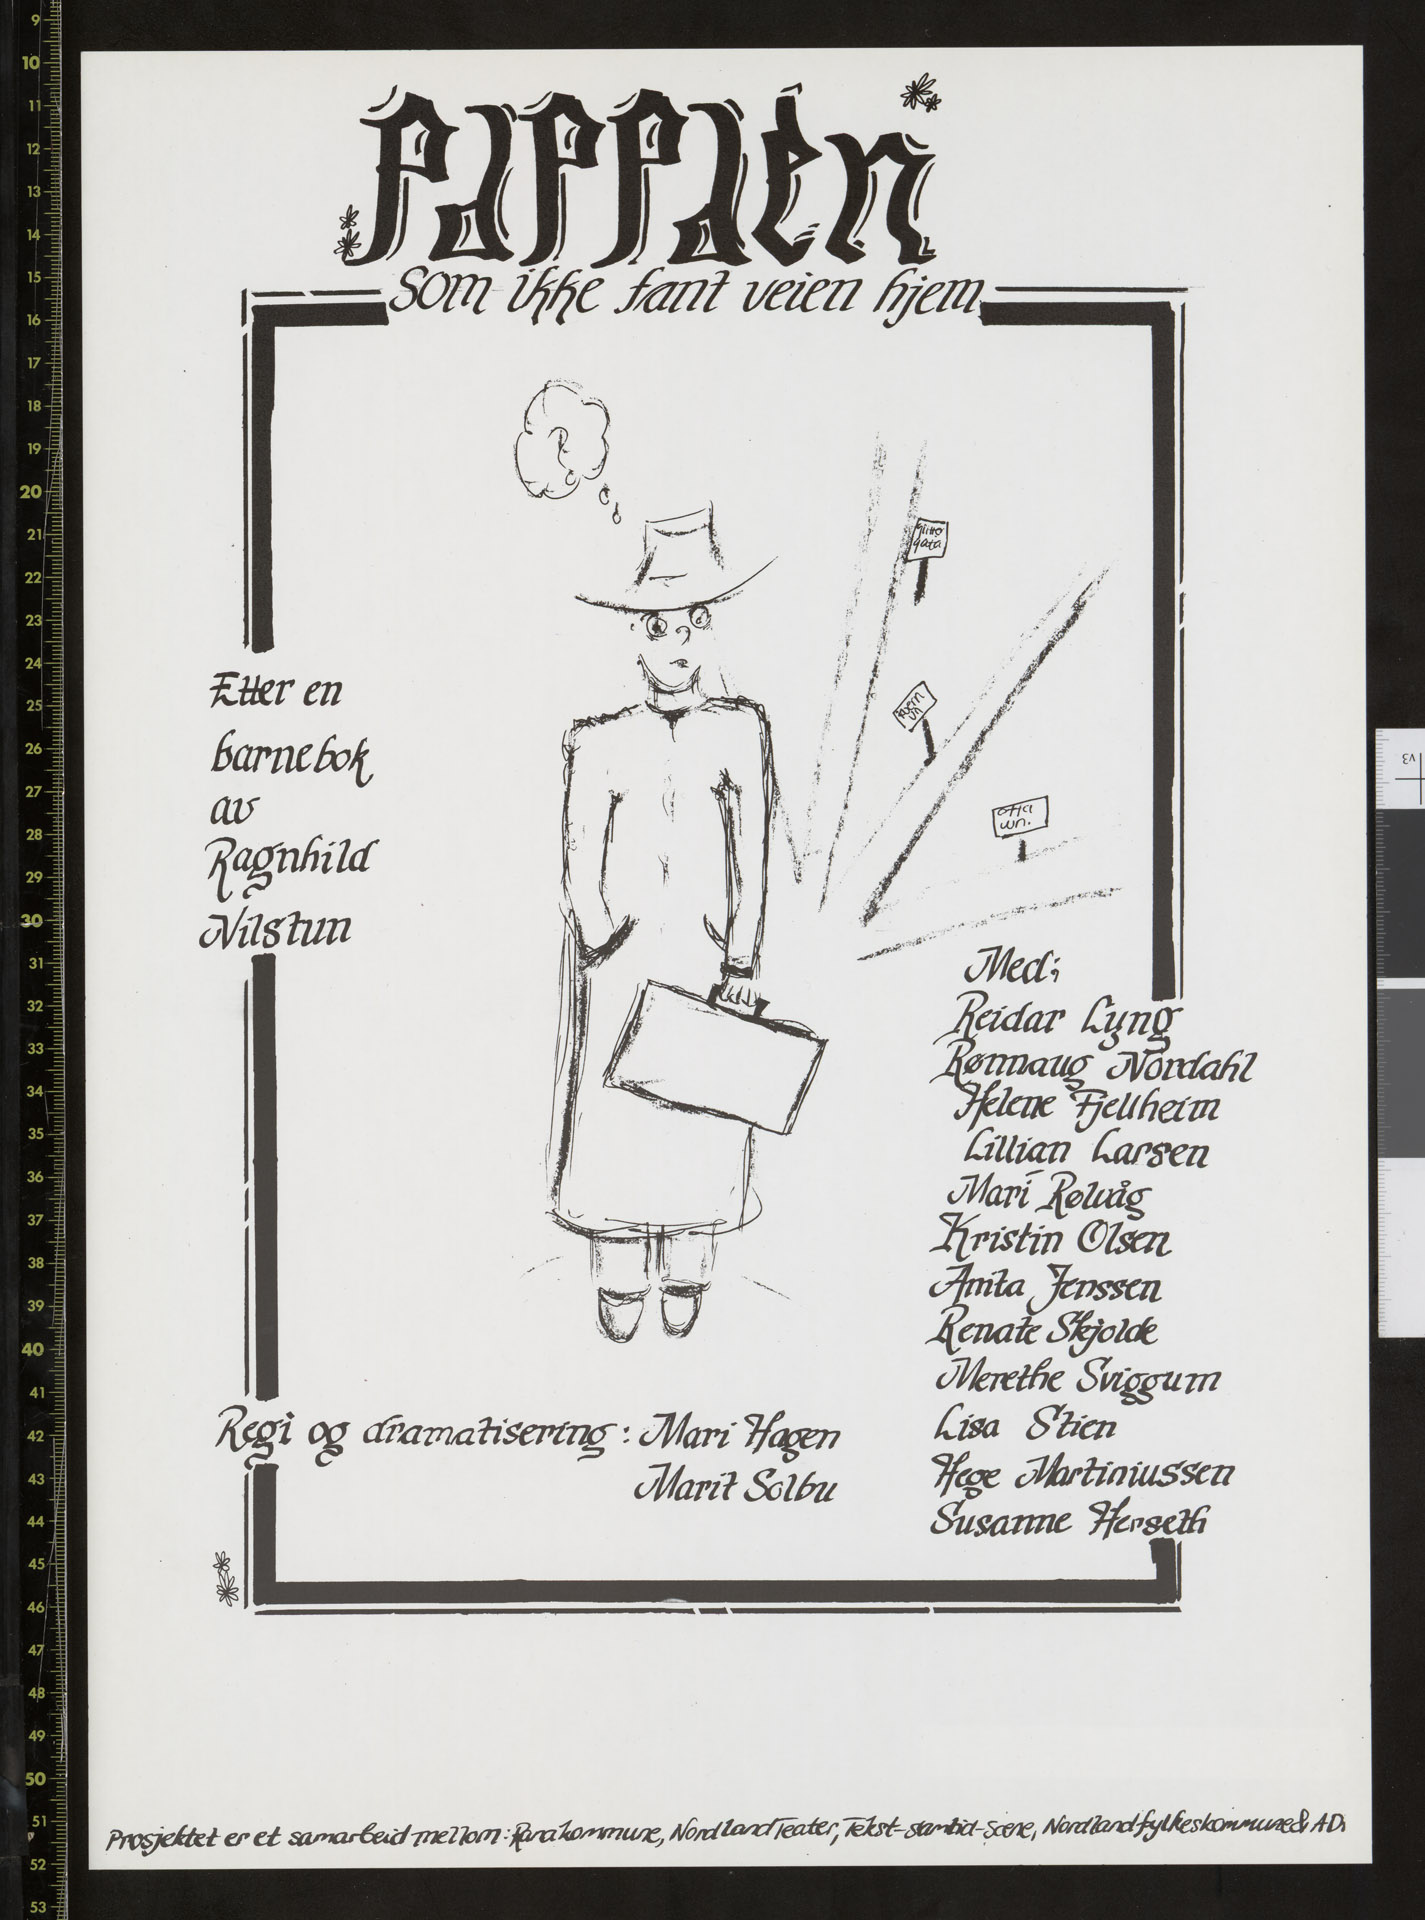 Pappaen
som ikke fant veien hjem
Etter en
barnebok
av
Ragnhild
Nilstun
gata
otta
Med;
Reidar Lyng
Rønnaug Nordahl
Helene Fjellheim
Lillian Larsen
Mari Rølvåg
Kristin Olsen
Anita Jenssen
Renate Skjolde
Merethe Sviggum
Lisa Stien
Hege Martiniussen
Susanne Herseth
Regi og dramatisering: Mari Hagen
Marit Solbu
Prosjektet er et samarbeid mellom: Rana kommune, Nordland Teater, Tekst-samtid-scene, Nordland fylkeskommune & AD.
9
10
11
12
13
14
15
16
17
18
19
20
21
22
23
24
25
26
27
28
29
30
31
32
33
34
35
36
37
38
39
40
41
42
43
44
45
46
47
48
49
50
51
52
53
v3